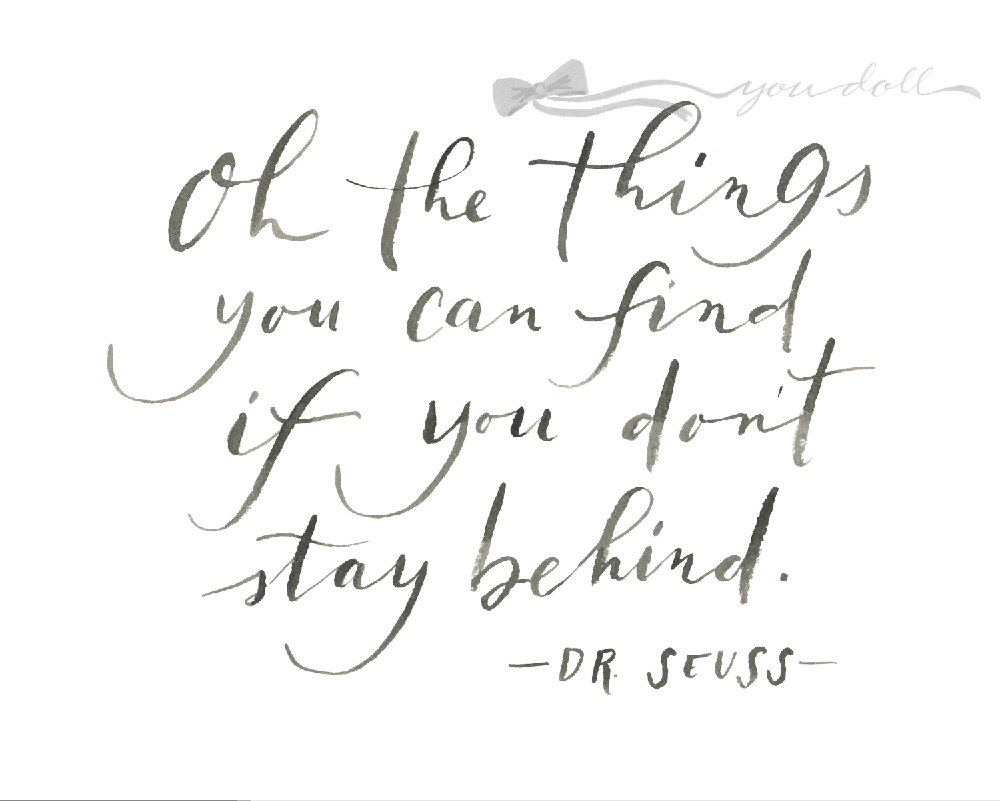 you doll
Oh the things
you can find
if you don't
stay behind.
—DR. SEUSS—